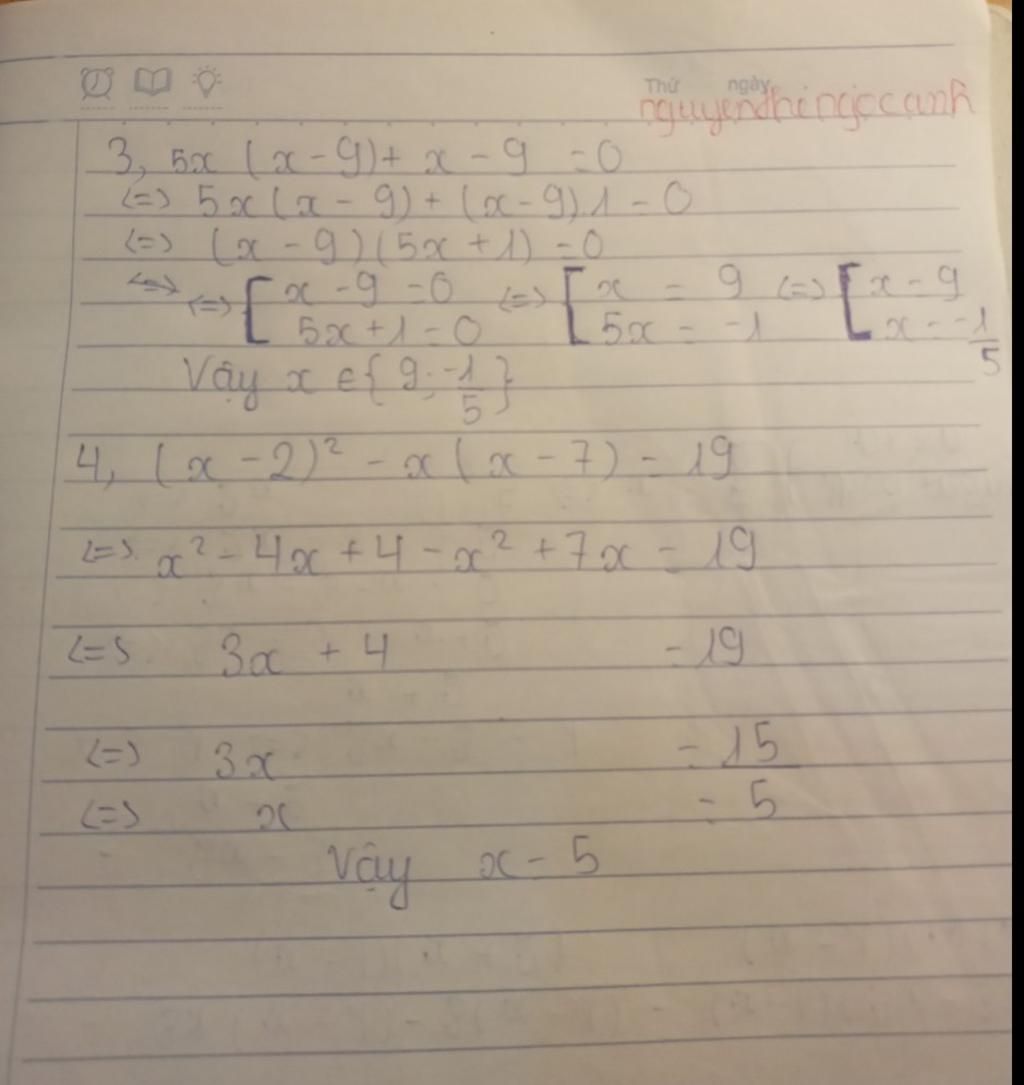 Thứ ngày
nguyenthingocanh
3, 5x (x - 9) + x - 9 = 0
<=> 5x (x - 9) + (x - 9) . 1 = 0
<=> (x - 9) (5x + 1) = 0
<=> <=> [ x - 9 = 0 <=> [ x = 9 <=> [ x = 9
5x + 1 = 0 5x = -1 x = -1/5
Vậy x ∈ { 9 ; -1/5 }
4, (x - 2)² - x (x - 7) = 19
<=> x² - 4x + 4 - x² + 7x = 19
<=> 3x + 4 = 19
<=> 3x = 15
<=> x = 5
Vậy x = 5